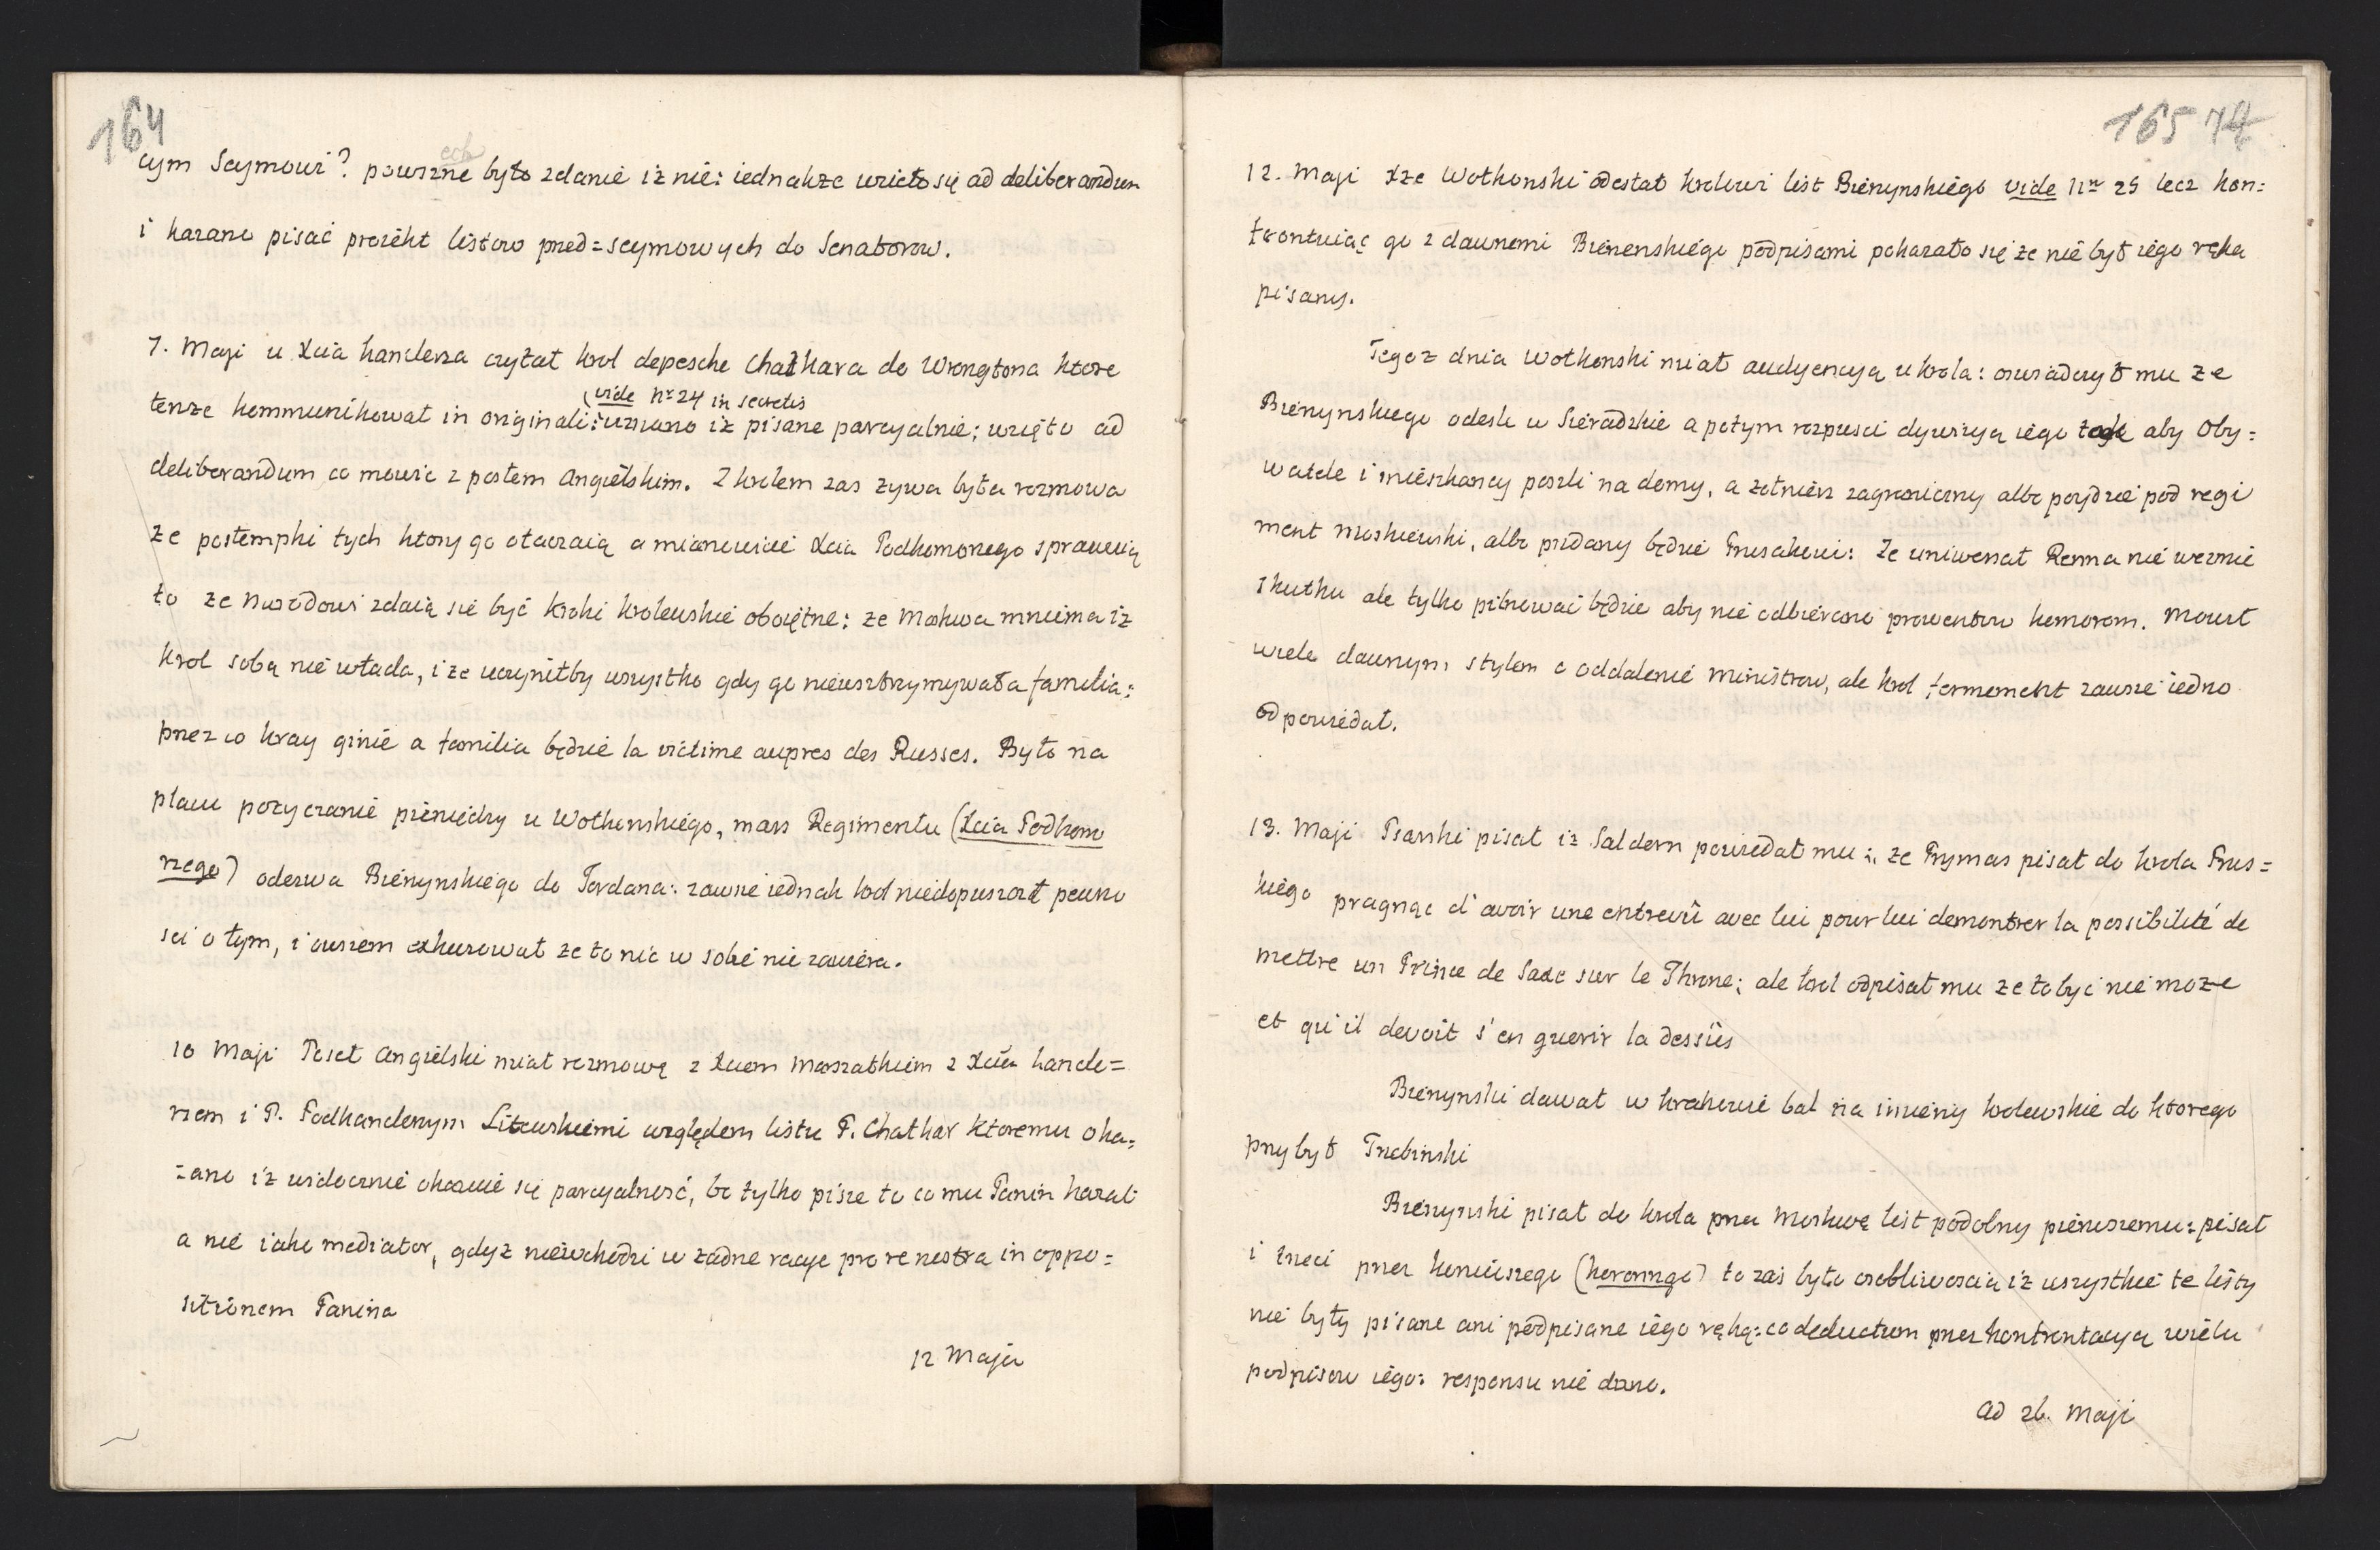 164
cym Seymowi? powszne było zdanie iż nie: iednakże wzieto się ad deliberandum
i kazano pisać proiekt listow pred=seymowych do Senatorow.
7. Maji u Xcia kanclerza czytał krol depesche Chatkara do Wrongtona ktore
(vide Nr 24 in secretis
tenze kommunikował in originali: uznano iż pisane parcyalnie; wzięto ad
deliberandum co mowic z posłem Angielskim. Z krolem zas zywa była rozmowa
ze postempki tych ktory go otaczaią a mianowicie Xcia Podkomorzego sprawuią
to ze Narodowi zdaią się być kroki krolewskie oboiętne: ze Moskwa mniema iż
krol sobą nie włada, i ze uczyniłby wszystko gdy go niewsztrzymywała familia:
przez co kray ginie a familia będzie la victime aupres des Russes. Było na
placu pozyczanie pieniędzy u Wołkonskiego, mars Regimentu (Xcia Podkomo
rzego) odezwa Bierzynskiego do Jordana: zawsze iednak krol niedopuszczał pewno
sci o tym, i owszem exkuzował ze to nic w sobie nie zawiera.
10 Maji Poseł Angielski miał rozmowę z Xciem Marszałkiem z Xcia kancle=
rzem i P. Podkanclerzym Litewskiemi względem listu P. Chatkar ktoremu oka=
=zano iż widocznie okazuie się parcyalność, bo tylko pisze to co mu Panin kazał
a nie iako mediator, gdyz niewchodzi w zadne racye pro re nostra in oppo=
sitionem Panina
12 Maja
165 74
12. Maji Xze Wołkonski odesłał krolowi list Bierzynskiego vide Nr 25 lecz kon=
frontuiąc go z dawnemi Bierzenskiego podpisami pokazało się że nie był iego ręka
pisany.
Tegoz dnia Wołkonski miał audyencyą u krola: oswiadczył mu ze
Bierzynskiego odesle w Sieradzkie a potym rozpusci dywizyą iego aby Oby=
watele i mieszkancy poszli na domy, a żołnierz zagraniczny albo poydzie pod regi
ment Moskiewski, albo przdany będzie Prusakowi: Ze uniwersał Renna nie wezmie
skutku ale tylko pilnować będzie aby nie odbierano prowentow komorom. Mowił
wiele dawnym stylem o oddalenie Ministrow, ale krol fermement zawsze iedno
odpowiedał.
13. Maji Psarski pisał iz Saldern powiedał mu :, ze Prymas pisał do krola Prus=
kiego pragnąc d'avoir une entrevû avec lui pour lui demontrer la possibilité de
mettre un Prince de Saxe sur le Throne; ale krol odpisał mu ze to byc nie moze
et qu'il devoit s'en guerir la dessüs
Bierzynski dawał w krakowie bal na imieniy krolewskie do ktorego
przybył Trzebinski
Bierzynski pisał do krola przez Moskwę list podobny pierwszemu: pisał
i trzeci przez koniuszego (koronngo) to zaś było osobliwoscia iż wszystkie te listy
nie były pisane ani podpisane iego ręką: co deductum przez konfrontacyą wielu
podpisow iego: responsu nie dano.
Ad 26. Maji